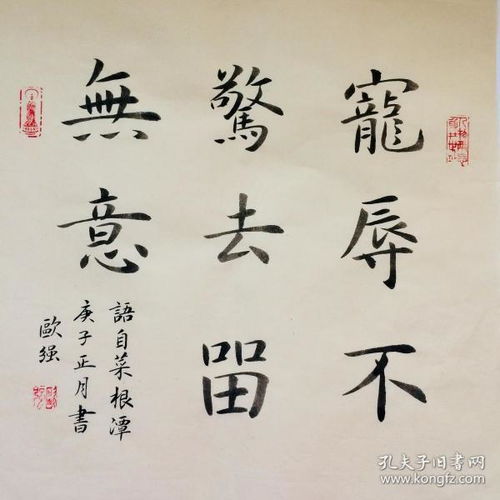 寵辱不
驚去留
無意
語自菜根潭
庚子正月書
歐强
孔夫子旧书网
www.kongfz.com